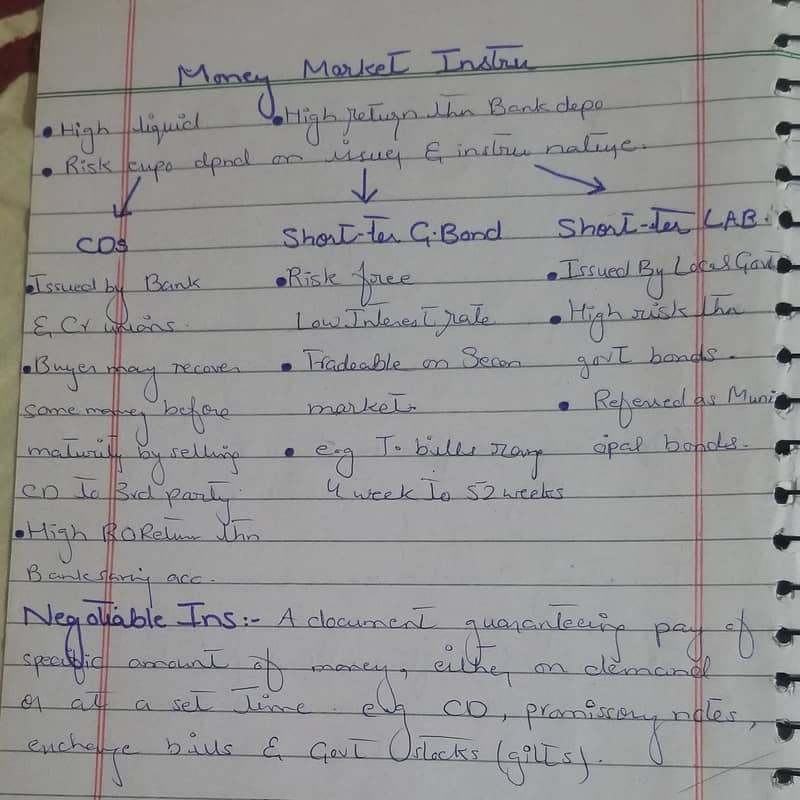 Money Market Instru
• High liquid • High return thn Bank depo
• Risk expo dpnd on issuer & instru nature.
CDs
• Issued by Bank
& Cr unions.
• Buyer may recover
some money before
maturity by selling
CD To 3rd party.
• High RO Return thn
Bank saving acc.
Short-ter G.Bond
• Risk free
Low Interest rate
• Tradeable on Secon
market.
• e.g T. bills rang
4 week To 52 weeks
Short-ter LAB.
• Issued By Local Govt
• High risk thn
govt bonds.
• Referred as Muni
cipal bonds.
Negotiable Ins:- A document guaranteeing pay of
specific amount of money, either on demand
or at a set Time. e.g CD, promissory notes,
exchange bills & Govt stocks (gilts).